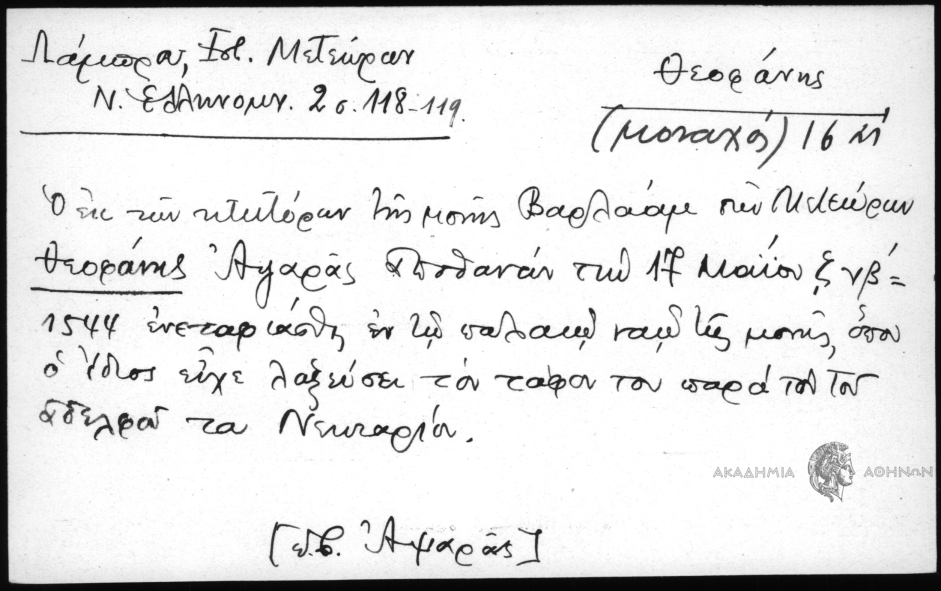 Λάμπρου, Ἱστ. Μετεώρων
Ν. Ἑλληνομν. 2 σ. 118-119.
Θεοφάνης
(μοναχός) 16 αἰ
Ὁ ἐκ τῶν κτιτόρων τῆς μονῆς Βαρλαάμ τῶν Μετεώρων
Θεοφάνης Ἀψαρᾶς ἀποθανών τήν 17 Μαΐου ζνβ΄=
1544 ἐνεταφιάσθη ἐν τῷ παλαιῷ ναῷ τῆς μονῆς, ὅπου
ὁ ἴδιος εἶχε λαξεύσει τόν τάφον του παρά τόν τοῦ
ἀδελφοῦ του Νεκταρίου.
ΑΚΑΔΗΜΙΑ ΑΘΗΝΩΝ
Ἀψαρᾶς]